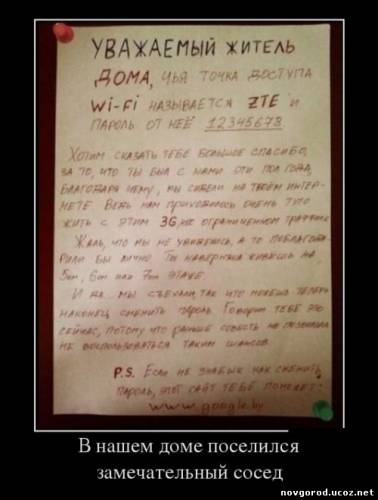 УВАЖАЕМЫЙ ЖИТЕЛЬ
ДОМА, ЧЬЯ ТОЧКА ДОСТУПА
Wi-Fi НАЗЫВАЕТСЯ ZTE И
ПАРОЛЬ ОТ НЕЁ 12345678.
ХОТИМ СКАЗАТЬ ТЕБЕ БОЛЬШОЕ СПАСИБО,
ЗА ТО, ЧТО ТЫ БЫЛ С НАМИ ЭТИ ПОЛ ГОДА,
БЛАГОДАРЯ ЧЕМУ, МЫ СИДЕЛИ НА ТВОЁМ ИНТЕР-
НЕТЕ. ВЕДЬ НАМ ПРИХОДИЛОСЬ ОЧЕНЬ ТУГО
ЖИТЬ С ЭТИМ 3G, ИХ ОГРАНИЧЕННОМ ТРАФФИКЕ
ЖАЛЬ, ЧТО МЫ НЕ УВИДЕЛИСЬ, А ТО ПОБЛАГОДА-
РИЛИ БЫ ЛИЧНО. ТЫ НАВЕРНЯКА ЖИВЕШЬ НА
5ом, 6ом ИЛИ 7ом ЭТАЖЕ.
И ДА... МЫ СЪЕХАЛИ, ТАК ЧТО МОЖЕШЬ ТЕПЕРЬ
НАКОНЕЦ СМЕНИТЬ ПАРОЛЬ. ГОВОРИМ ТЕБЕ ЭТО
СЕЙЧАС, ПОТОМУ ЧТО РАНЬШЕ СОВЕСТЬ НЕ ПОЗВОЛЯЛА
НЕ ВОСПОЛЬЗОВАТЬСЯ ТАКИМ ШАНСОМ.
P.S. ЕСЛИ НЕ ЗНАЕШЬ КАК СМЕНИТЬ
ПАРОЛЬ, ЭТОТ САЙТ ТЕБЕ ПОМОЖЕТ:
www.google.by
В нашем доме поселился
замечательный сосед
novgorod.ucoz.net